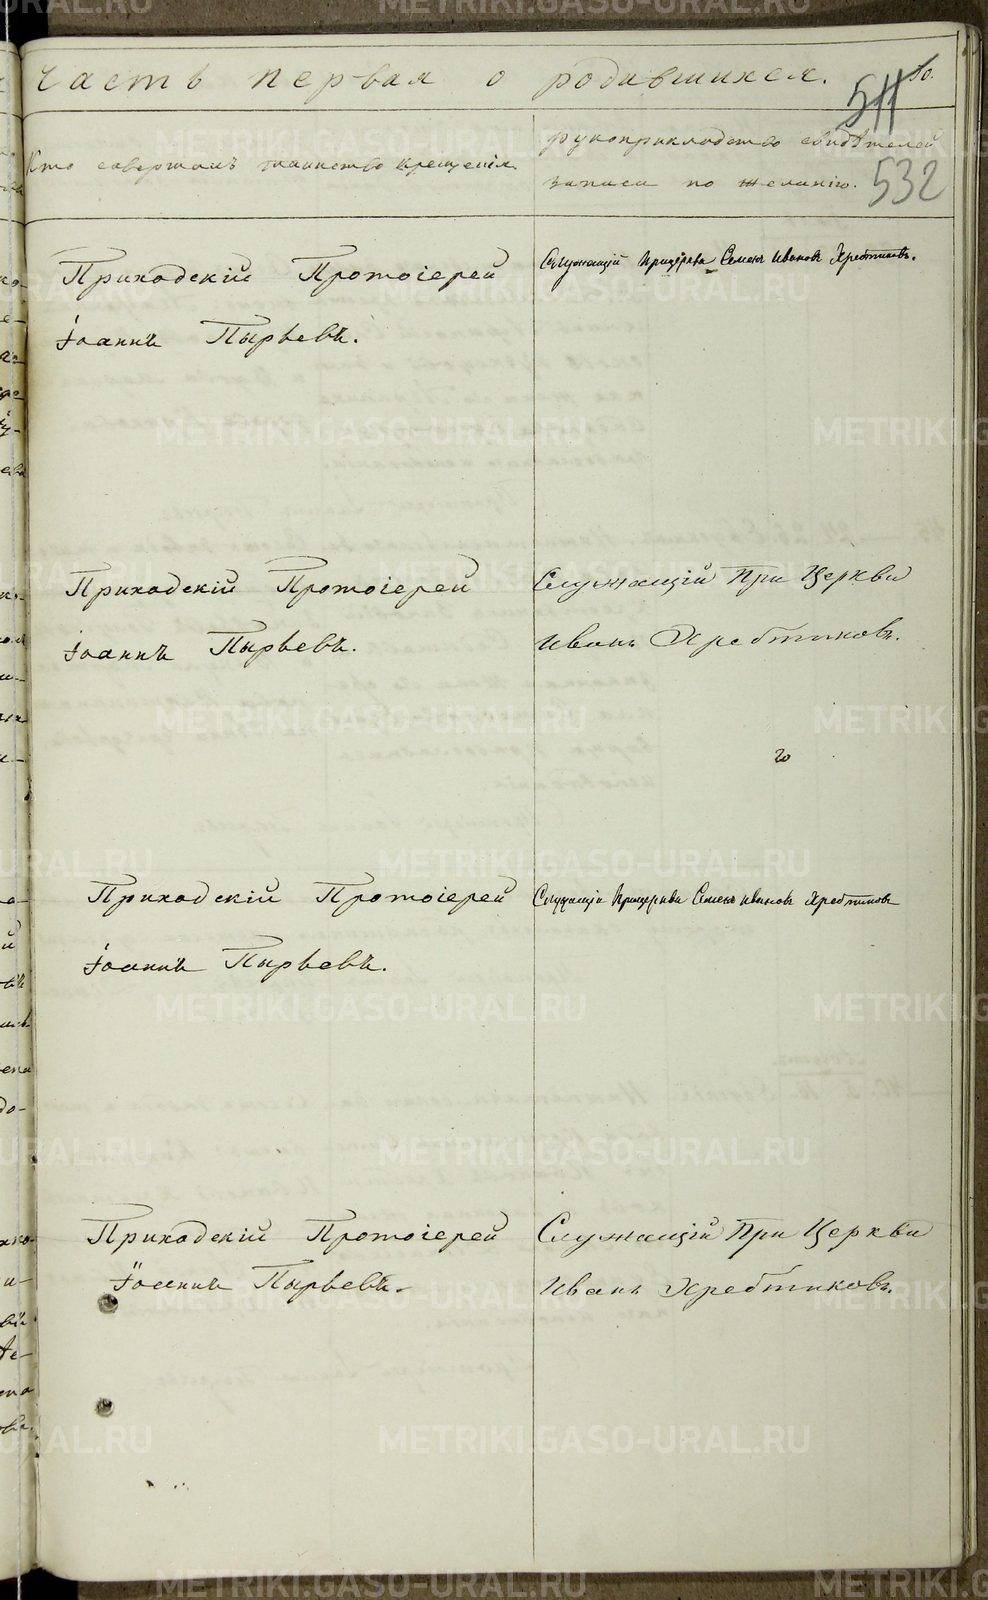 Часть первая о родившихся.
10.
511
Кто совершалъ таинство крещенія.
рукоприкладство свидѣтелей
записи по желанію.
532
Приходскій Протоіерей
Іоаннъ Пырьевъ.
Служащій при церкви Семенъ Ивановъ Хребтиковъ.
Приходскій Протоіерей
Іоаннъ Пырьевъ.
Служащій При Церкви
Иванъ Хребтиковъ.
Приходскій Протоіерей
Іоаннъ Пырьевъ.
Служащій при церкви Семенъ Ивановъ Хребтиковъ
Приходскій Протоіерей
Іоаннъ Пырьевъ.
Служащій При Церкви
Иванъ Хребтиковъ.
METRIKI.GASO-URAL.RU